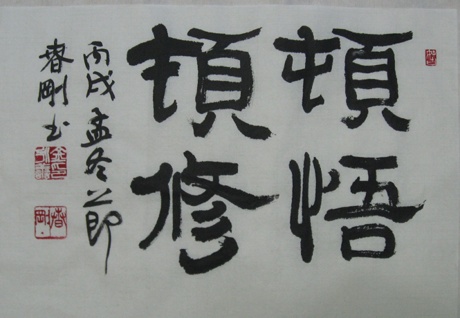 頓悟
頓修
丙戌孟冬之節
春剛书